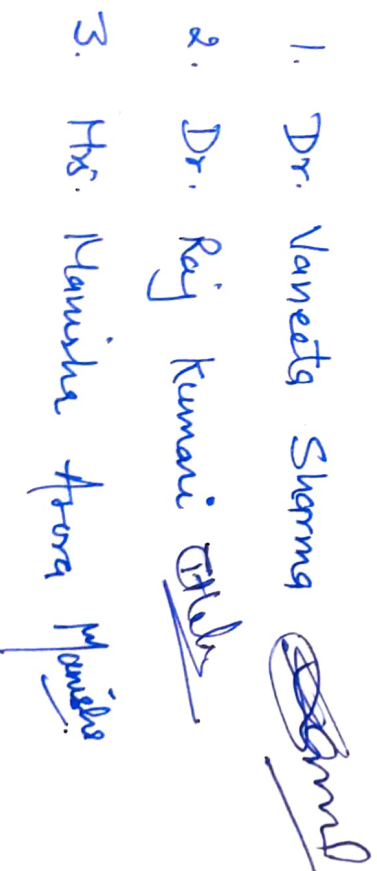 1. Dr. Vaneeta Sharma
2. Dr. Raj Kumari
3. Mrs. Manisha Arora Manisha